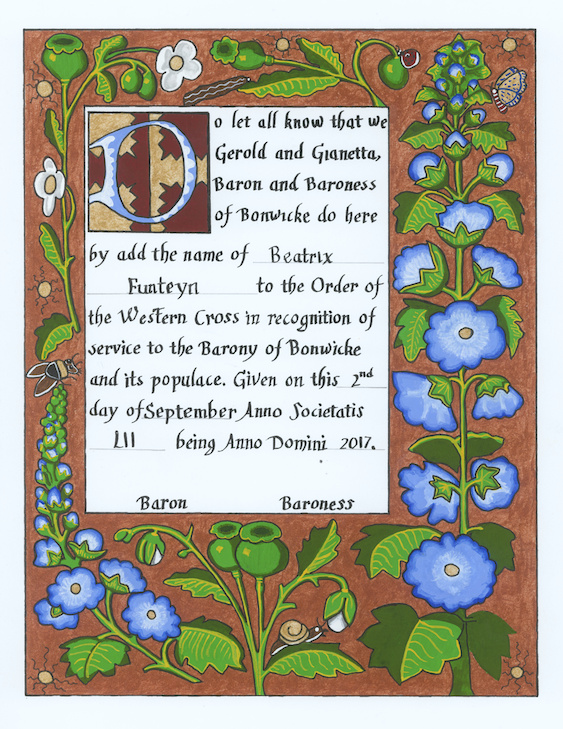 Do let all know that we
Gerold and Gianetta,
Baron and Baroness
of Bonwicke do here
by add the name of Beatrix
Funteyn to the Order of
the Western Cross in recognition of
service to the Barony of Bonwicke
and its populace. Given on this 2nd
day of September Anno Societatis
LII being Anno Domini 2017.
Baron Baroness